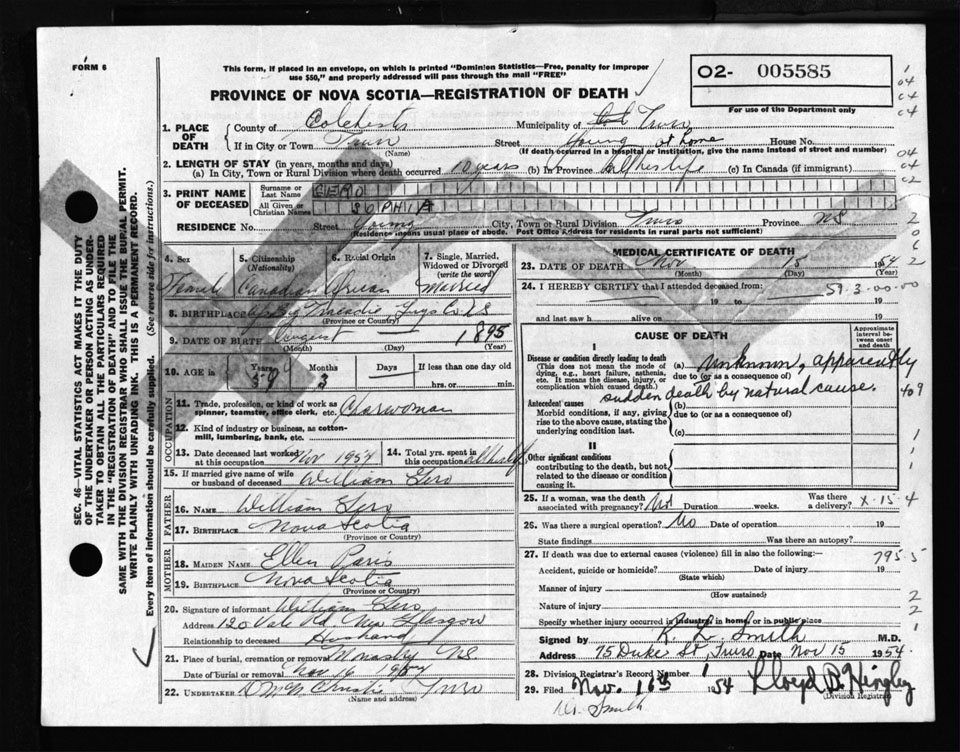 FORM 6
This form, if placed in an envelope, on which is printed "Dominion Statistics—Free, penalty for improper
use $50," and properly addressed will pass through the mail "FREE"
PROVINCE OF NOVA SCOTIA—REGISTRATION OF DEATH
O2- 005585
For use of the Department only
1. PLACE OF DEATH
County of Colchester Municipality of Truro
If in City or Town Truro Street Young at home House No.
(Name) (If death occurred in a hospital or institution, give the name instead of street and number)
2. LENGTH OF STAY (in years, months and days)
(a) In City, Town or Rural Division where death occurred 10 years (b) In Province All her life (c) In Canada (if immigrant)
3. PRINT NAME OF DECEASED
Surname or Last Name GERO
All Given or Christian Names SOPHIA
RESIDENCE No. Street Young City, Town or Rural Division Truro Province NS
(Residence means usual place of abode. Post Office Address for residents in rural parts not sufficient)
4. Sex Female
5. Citizenship (Nationality) Canadian
6. Racial Origin African
7. Single, Married, Widowed or Divorced (write the word) Married
8. BIRTHPLACE Tracadie Guys Co NS
(Province or Country)
9. DATE OF BIRTH August 1895
(Month) (Day) (Year)
10. AGE in Years 59 Months 3 Days If less than one day
hrs. or min.
OCCUPATION
11. Trade, profession, or kind of work as
spinner, teamster, office clerk, etc. Charwoman
12. Kind of industry or business, as cotton-
mill, lumbering, bank, etc.
13. Date deceased last worked at this occupation Nov 1954
14. Total yrs. spent in this occupation All her life
15. If married give name of wife
or husband of deceased William Gero
FATHER
16. Name William Gero
17. BIRTHPLACE Nova Scotia
(Province or Country)
MOTHER
18. MAIDEN NAME Ellen Paris
19. BIRTHPLACE Nova Scotia
(Province or Country)
20. Signature of informant William Gero
Address 120 Vale Rd New Glasgow
Relationship to deceased Husband
21. Place of burial, cremation or removal NS
Date of burial or removal Nov
22. UNDERTAKER Truro
(Name and address)
MEDICAL CERTIFICATE OF DEATH
23. DATE OF DEATH Nov 15 1954
(Month) (Day) (Year)
24. I HEREBY CERTIFY that I attended deceased from: 59-3-00-00
19 to 19
and last saw h alive on 19
CAUSE OF DEATH
Approximate interval between onset and death
I
Disease or condition directly leading to death
(This does not mean the mode of dying, e.g., heart failure, asthenia, etc. It means the disease, injury, or complication which caused death.)
(a) Unknown, apparently
due to (or as a consequence of)
sudden death by natural cause.
Antecedent causes
Morbid conditions, if any, giving rise to the above cause, stating the underlying condition last.
(b)
due to (or as a consequence of)
(c)
II
Other significant conditions
contributing to the death, but not related to the disease or condition causing it.
25. If a woman, was the death
associated with pregnancy? No Duration weeks. Was there a delivery? X-15-4
26. Was there a surgical operation? No Date of operation 19
State findings Was there an autopsy?
27. If death was due to external causes (violence) fill in also the following:— 795.5
Accident, suicide or homicide? Date of injury 19
(State which)
Manner of injury
(How sustained)
Nature of injury
Specify whether injury occurred in industry, in home, or in public place
Signed by R. L. Smith M.D.
Address 75 Duke St, Truro Date Nov 15 1954.
28. Division Registrar's Record Number
29. Filed Nov. 16th 1954 Lloyd B. Hingley
(Division Registrar)
Smith
SEC. 46—VITAL STATISTICS ACT MAKES IT THE DUTY
OF THE UNDERTAKER OR PERSON ACTING AS UNDER-
TAKER TO OBTAIN ALL THE PARTICULARS REQUIRED
IN THE "REGISTRATION OF DEATH" AND TO FILE THE
SAME WITH THE DIVISION REGISTRAR WHO SHALL ISSUE THE BURIAL PERMIT.
WRITE PLAINLY WITH UNFADING INK. THIS IS A PERMANENT RECORD.
Every item of information should be carefully supplied. (See reverse side for instructions.)